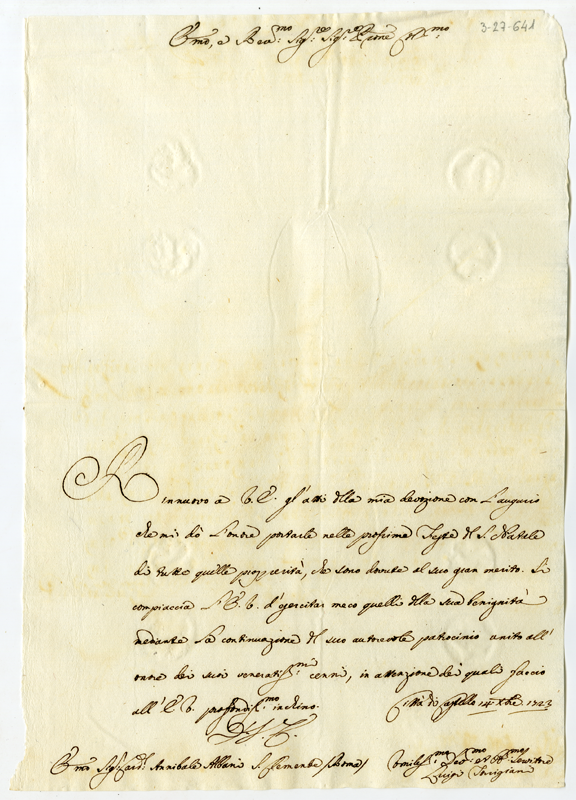 3-27-641
E.mo, e Rev.mo Sig.re Sig.re Prone Col.mo
Rinnuovo a V. E. gl'atti della mia devozione con l'augurio
che mi dò l'onore portarle nelle prossime Feste del S. Natale
di tutte quelle prosperità, che sono dovute al suo gran merito. Si
compiaccia l'E. V. d'esercitar meco quelli della sua benignità
mediante la continuazione del suo autorevole patrocinio unito all'
onore dei suoi veneratiss.mi cenni, in attenzione dei quali faccio
all'E. V. profondiss.mo inchino.
Città di Castello 14 Xbre 1723
D. V. E.
E.mo Sig.r Card. Annibale Albani S. Clemente (Roma)
Umiliss.mo Dev.mo et Obb.mo Servitore
Luigi